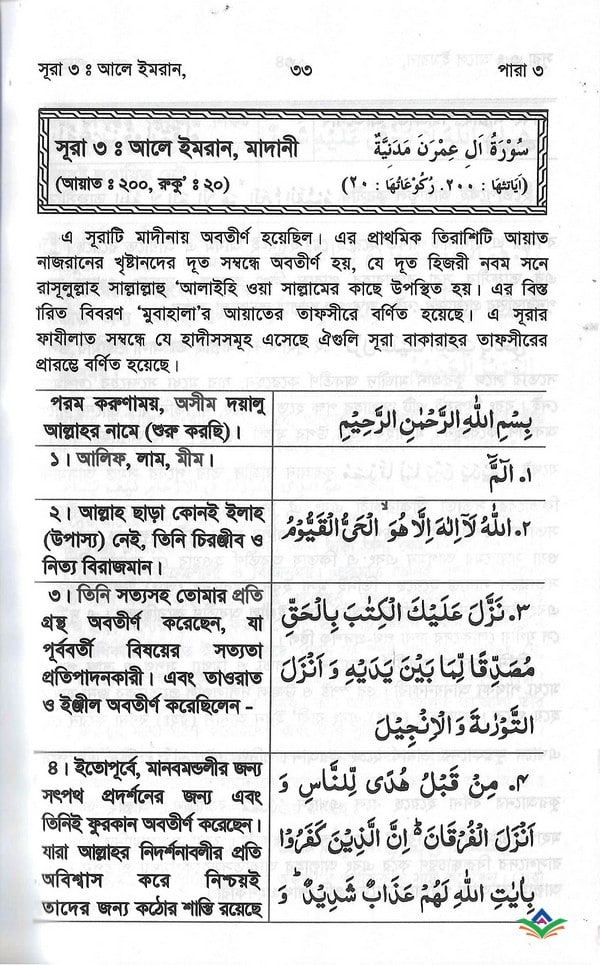 সূরা ৩ ঃ আলে ইমরান, ৩৩ পারা ৩
সূরা ৩ ঃ আলে ইমরান, মাদানী
سُوْرَةُ اٰلِ عِمْرٰنَ مَدَنِيَّةٌ
(আয়াত ঃ ২০০, রুকু' ঃ ২০)
(اٰيَاتُهَا : ٢٠٠، رُكُوْعَاتُهَا : ٢٠)
এ সূরাটি মাদীনায় অবতীর্ণ হয়েছিল। এর প্রাথমিক তিরাশিটি আয়াত
নাজরানের খৃষ্টানদের দূত সম্বন্ধে অবতীর্ণ হয়, যে দূত হিজরী নবম সনে
রাসূলুল্লাহ সাল্লাল্লাহু 'আলাইহি ওয়া সাল্লামের কাছে উপস্থিত হয়। এর বিস্ত
ারিত বিবরণ 'মুবাহালা'র আয়াতের তাফসীরে বর্ণিত হয়েছে। এ সূরার
ফাযীলাত সম্বন্ধে যে হাদীসসমূহ এসেছে ঐগুলি সূরা বাকারাহর তাফসীরের
প্রারম্ভে বর্ণিত হয়েছে।
পরম করুণাময়, অসীম দয়ালু
আল্লাহর নামে (শুরু করছি)।
بِسْمِ اللهِ الرَّحْمٰنِ الرَّحِيْمِ
১। আলিফ, লাম, মীম।
١. الٓمّٓ
২। আল্লাহ ছাড়া কোনই ইলাহ
(উপাস্য) নেই, তিনি চিরঞ্জীব ও
নিত্য বিরাজমান।
٢. اللهُ لَآ اِلٰهَ اِلَّا هُوَ ۙ الْحَىُّ الْقَيُّوْمُ
৩। তিনি সত্যসহ তোমার প্রতি
গ্রন্থ অবতীর্ণ করেছেন, যা
পূর্ববর্তী বিষয়ের সত্যতা
প্রতিপাদনকারী। এবং তাওরাত
ও ইঞ্জীল অবতীর্ণ করেছিলেন -
٣. نَزَّلَ عَلَيْكَ الْكِتٰبَ بِالْحَقِّ
مُصَدِّقًا لِّمَا بَيْنَ يَدَيْهِ وَ اَنْزَلَ
التَّوْرٰىةَ وَ الْاِنْجِيْلَ
৪। ইতোপূর্বে, মানবমন্ডলীর জন্য
সৎপথ প্রদর্শনের জন্য এবং
তিনিই ফুরকান অবতীর্ণ করেছেন।
যারা আল্লাহর নিদর্শনাবলীর প্রতি
অবিশ্বাস করে নিশ্চয়ই
তাদের জন্য কঠোর শাস্তি রয়েছে
٤. مِنْ قَبْلُ هُدًى لِّلنَّاسِ وَ
اَنْزَلَ الْفُرْقَانَ ۗ اِنَّ الَّذِيْنَ كَفَرُوْا
بِاٰيٰتِ اللهِ لَهُمْ عَذَابٌ شَدِيْدٌ ۗ وَ